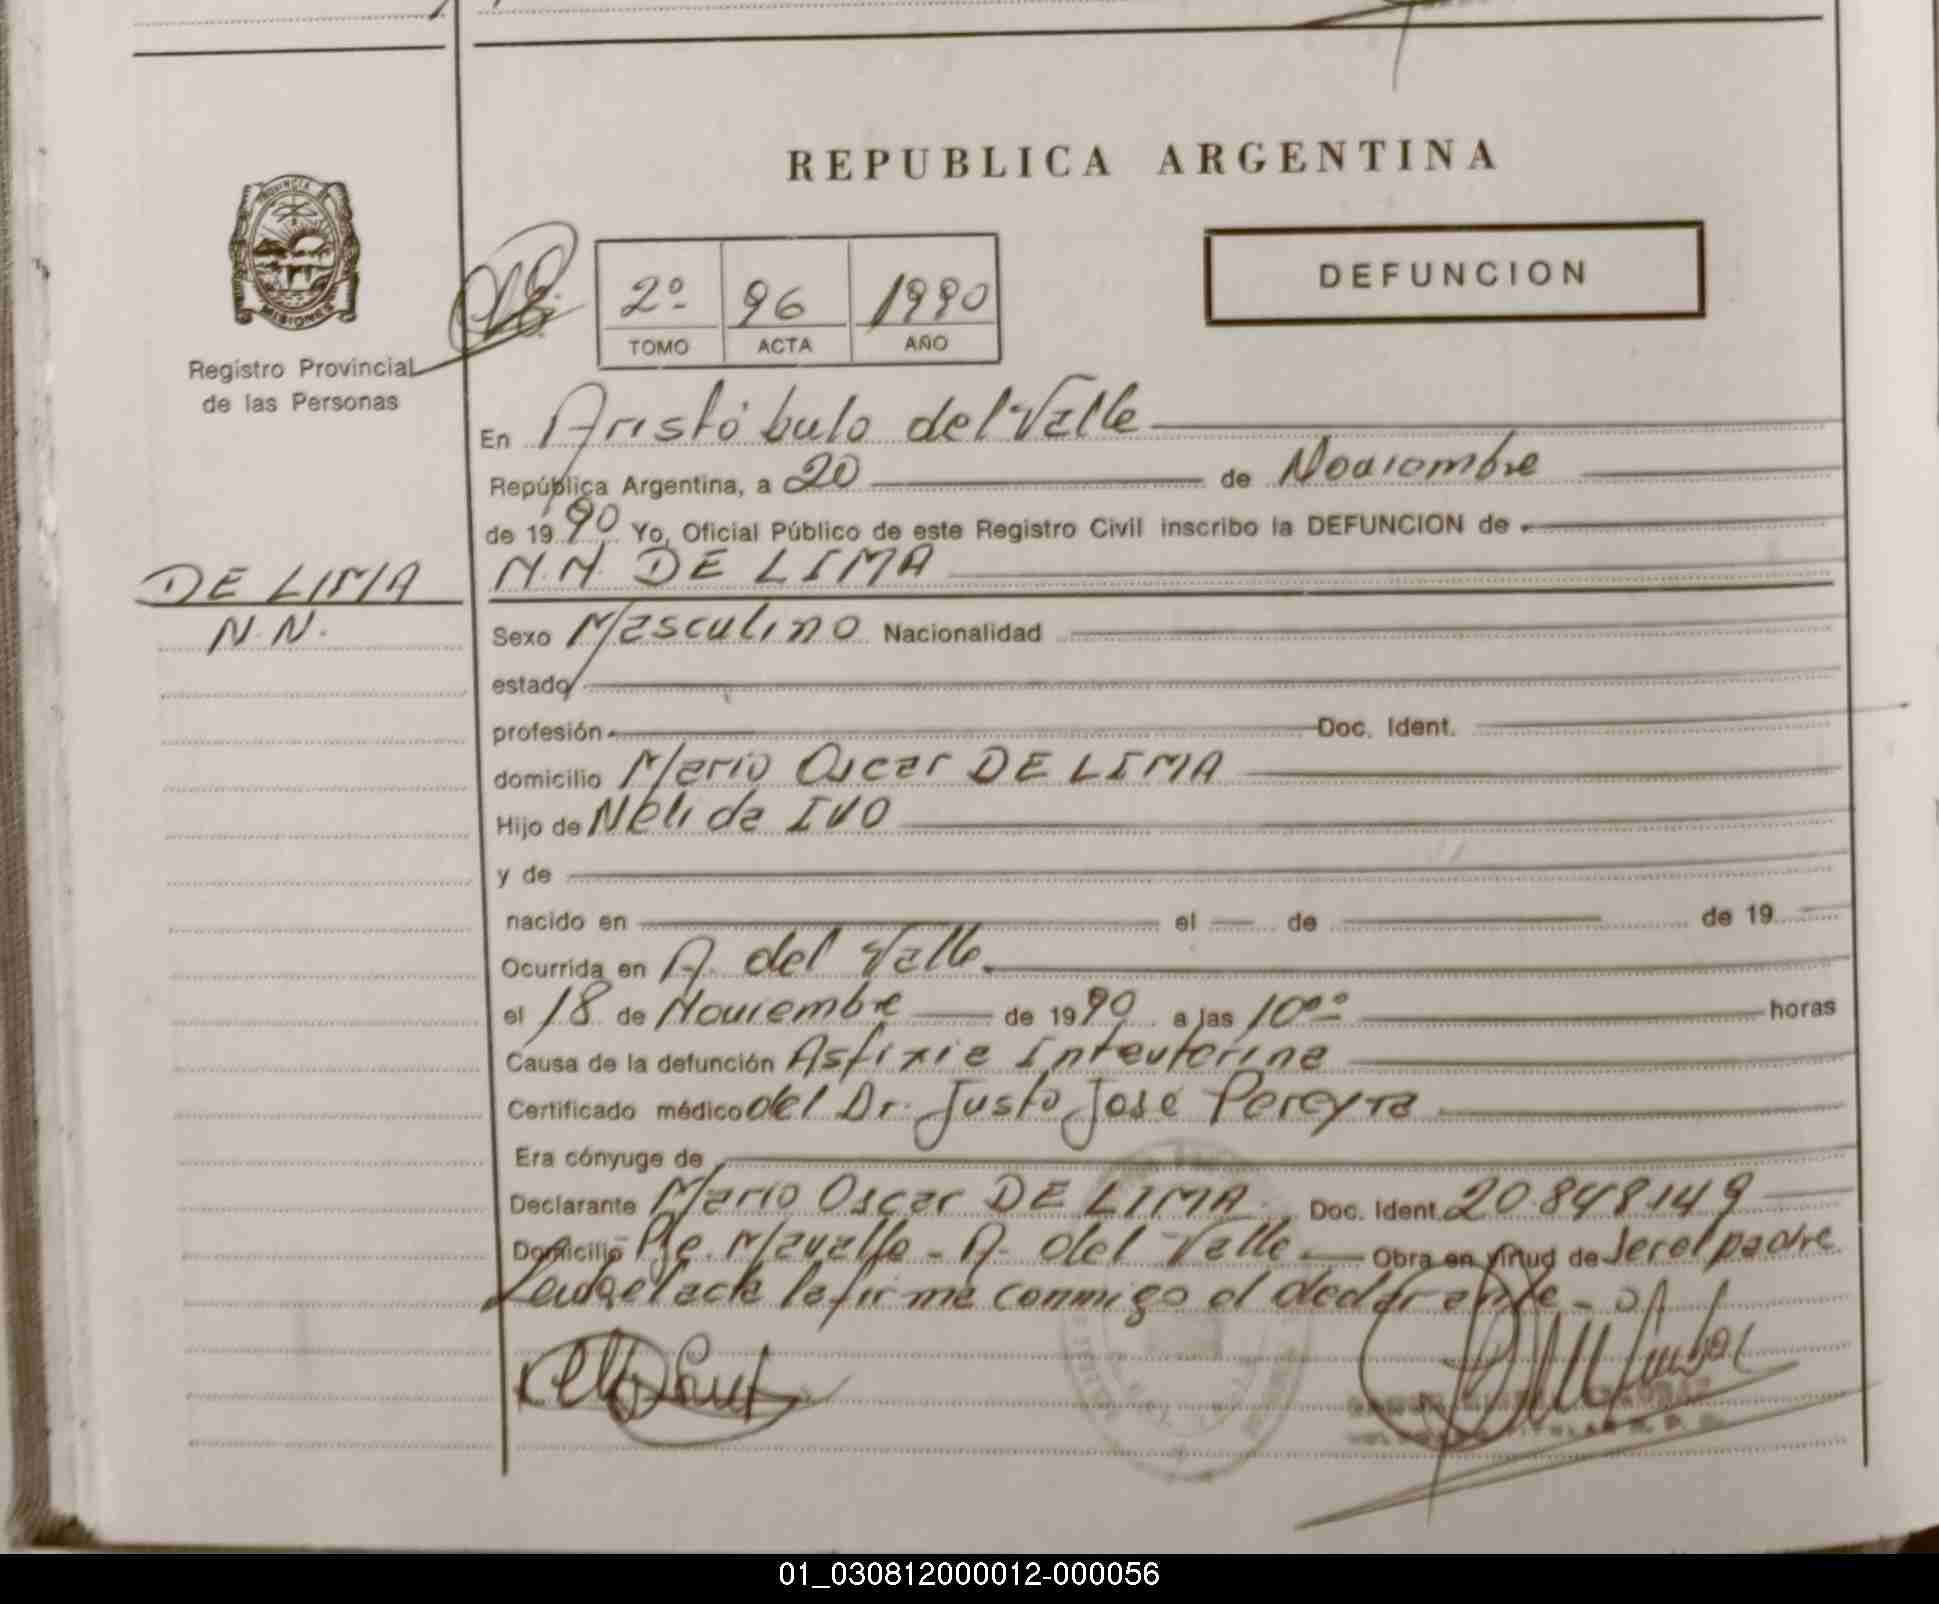 REPUBLICA ARGENTINA
DEFUNCION
2º 96 1990
TOMO ACTA AÑO
MISIONES
Registro Provincial
de las Personas
En Aristóbulo del Valle
República Argentina, a 20 de Noviembre
de 1990 Yo, Oficial Público de este Registro Civil inscribo la DEFUNCION de
N.N. DE LIMA
DE LIMA
N.N.
Sexo Masculino Nacionalidad
estado
profesión Doc. Ident.
domicilio Mario Oscar DE LIMA
Hijo de Nélida IVO
y de
nacido en el de de 19
Ocurrida en A. del Valle.
el 18 de Noviembre de 1990 a las 10ºº horas
Causa de la defunción Asfixia Inteuterina
Certificado médico del Dr. Justo José Pereyra
Era cónyuge de
Declarante Mario Oscar DE LIMA Doc. Ident. 20.848.149
Domicilio A. del Valle Obra en virtud de ser el padre
Leída el acta la firma conmigo el declarante -
01_030812000012-000056